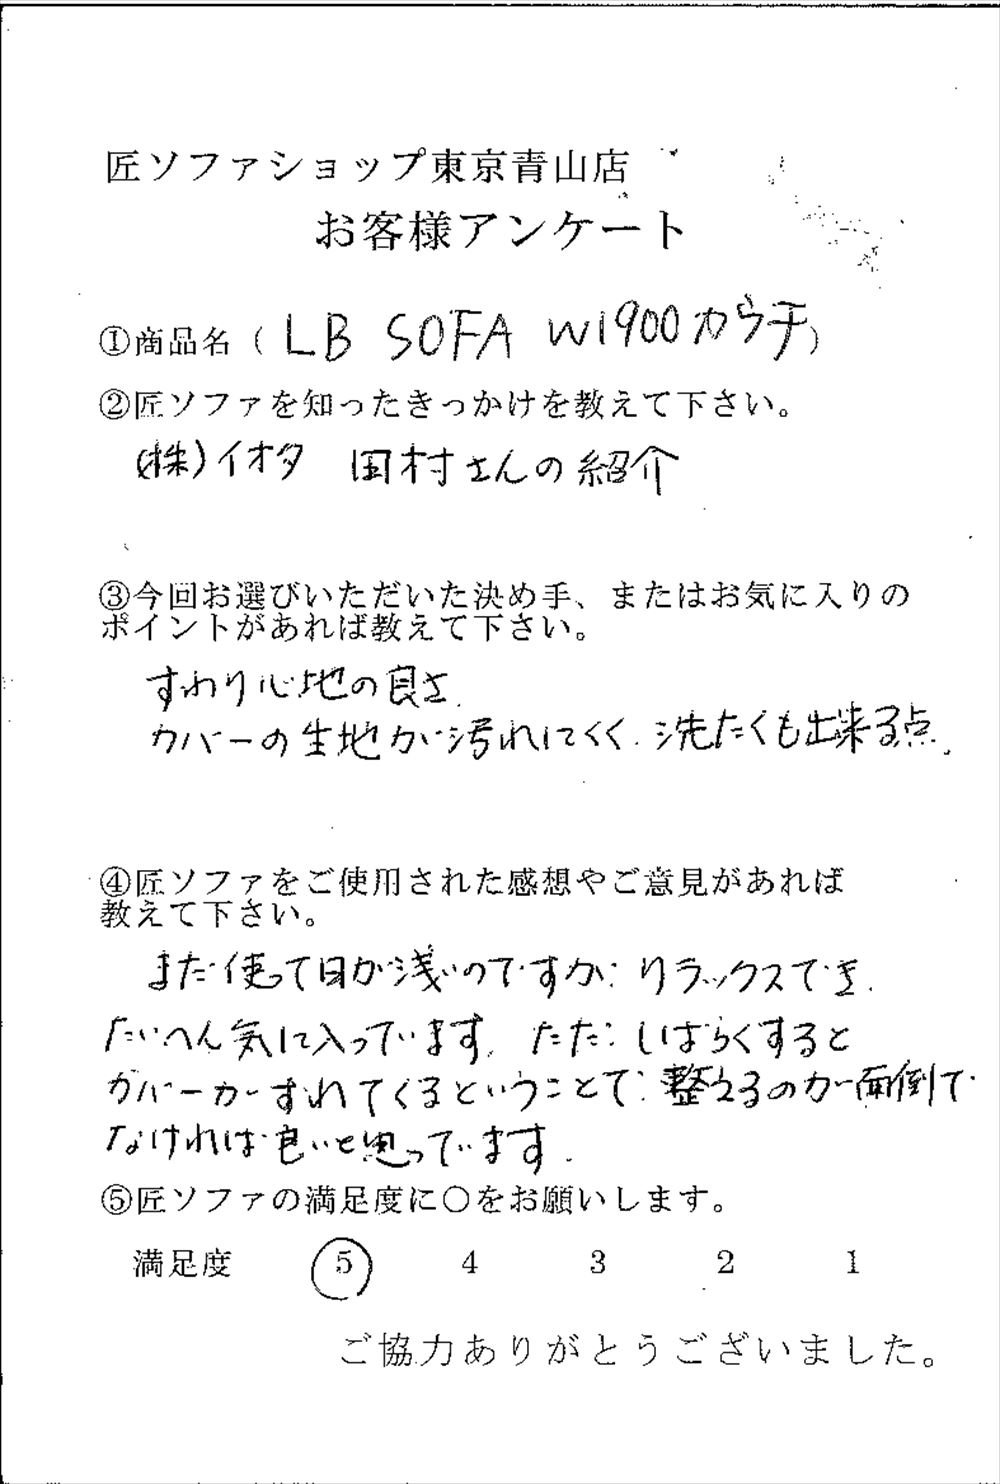 匠ソファショップ東京青山店
お客様アンケート
①商品名（ LB SOFA W1900カウチ）
②匠ソファを知ったきっかけを教えて下さい。
(株)イオタ 田村さんの紹介
③今回お選びいただいた決め手、またはお気に入りの
ポイントがあれば教えて下さい。
すわり心地の良さ.
カバーの生地が汚れにくく、洗たくも出来る点。
④匠ソファをご使用された感想やご意見があれば
教えて下さい。
まだ使って日が浅いのですが、リラックスでき、
たいへん気に入っています。ただ、しばらくすると
カバーがずれてくるということで、整えるのが面倒で
なければ良いと思っています。
⑤匠ソファの満足度に○をお願いします。
満足度 5 4 3 2 1
ご協力ありがとうございました。